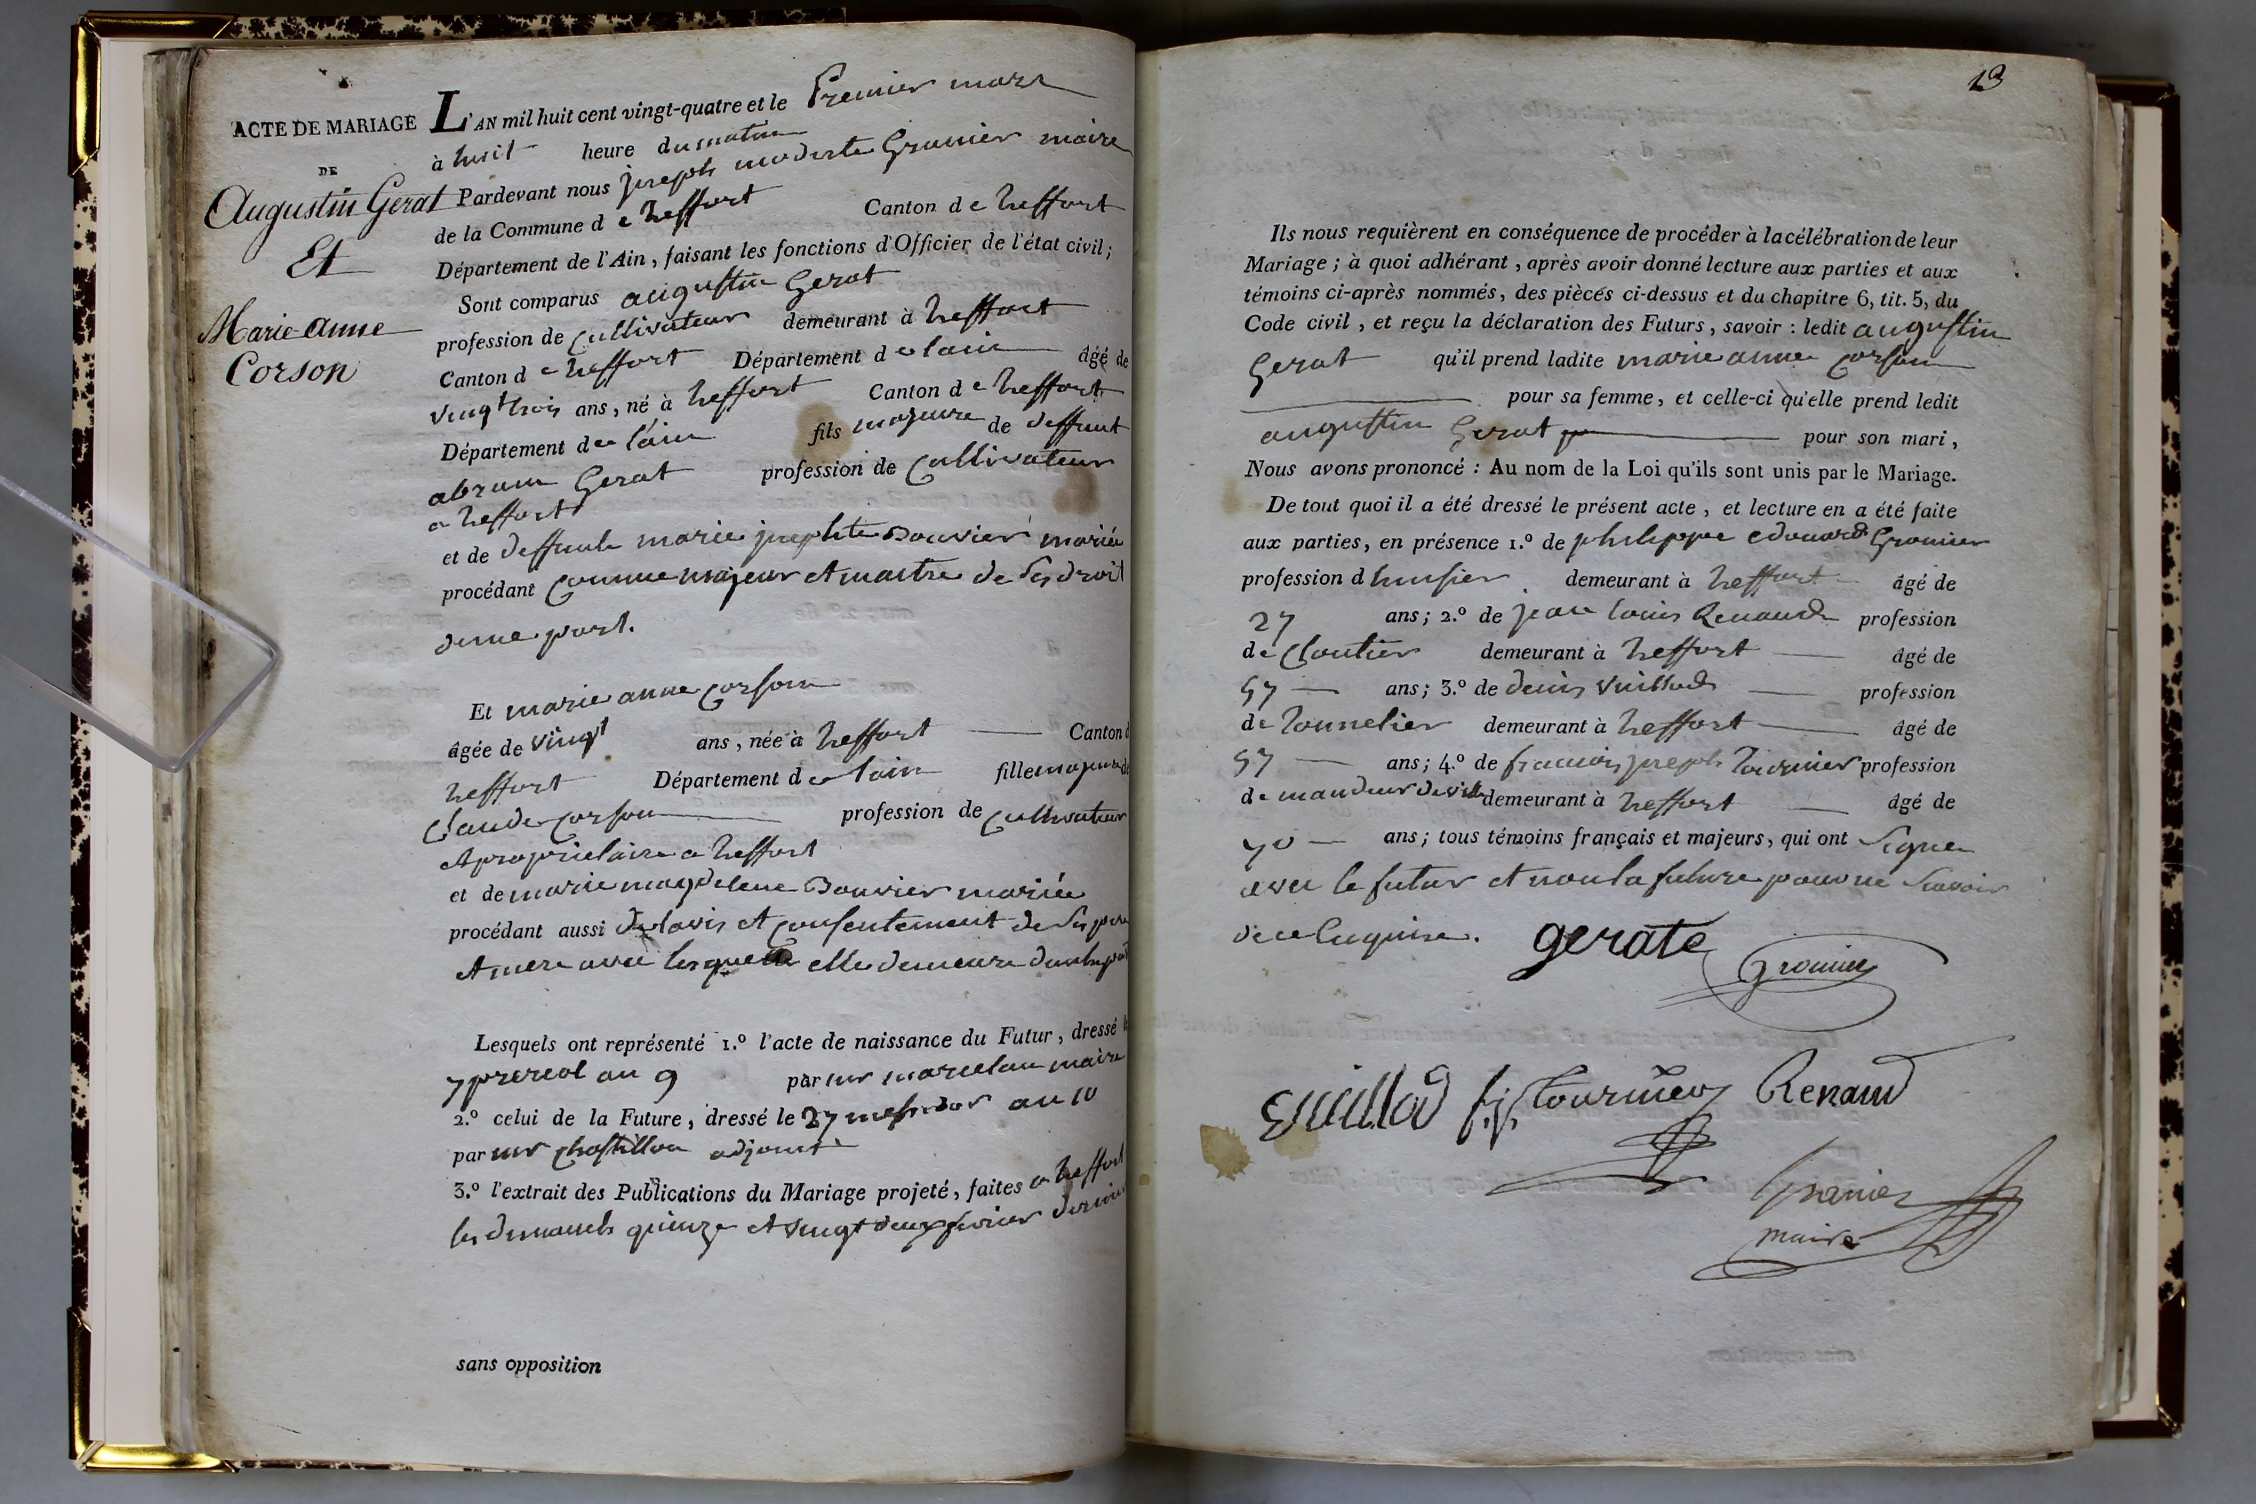 ACTE DE MARIAGE
DE
Augustin Gerat
Et
Marie anne
Corson
L'AN mil huit cent vingt-quatre et le Premier mars
à huit heure du matin
Pardevant nous joseph modeste Gromier maire
de la Commune d e treffort Canton d e treffort
Département de l'Ain, faisant les fonctions d'Officier de l'état civil;
Sont comparus augustin Gerat
profession de Cultivateur demeurant à treffort
Canton d e treffort Département d e lain âgé de
vingt trois ans, né à treffort Canton d e treffort
Département d e l'ain fils majeure de deffunt
abram Gerat profession de Cultivateur
a treffort
et de deffunte marie josephte Bouvier mariée
procédant comme majeur et maitre de ses droit
dune part.
Et marie anne corson
âgée de vingt ans, née à treffort Canton d
treffort Département d e lain fille majeure de
Claude corson profession de cultivateur
et proprietaire a treffort
et de marie magdelene Bouvier mariée
procédant aussi de lavis et consentement de ses pere
et mere avec lesquels elle demeure dautre part
Lesquels ont représenté 1.º l'acte de naissance du Futur, dressé le
7 prereol an 9 par mr marcelan maire
2.º celui de la Future, dressé le 27 messidor an 10
par mr chastillon adjoint
3.º l'extrait des Publications du Mariage projeté, faites a treffort
les dimanch quinze et vingt deux fevrier dernier
sans opposition
13
Ils nous requièrent en conséquence de procéder à la célébration de leur
Mariage; à quoi adhérant, après avoir donné lecture aux parties et aux
témoins ci-après nommés, des pièces ci-dessus et du chapitre 6, tit. 5, du
Code civil, et reçu la déclaration des Futurs, savoir: ledit augustin
Gerat qu'il prend ladite marie anne corson
pour sa femme, et celle-ci qu'elle prend ledit
augustin Gerat pour son mari,
Nous avons prononcé: Au nom de la Loi qu'ils sont unis par le Mariage.
De tout quoi il a été dressé le présent acte, et lecture en a été faite
aux parties, en présence 1.º de philippe edouard Gromier
profession d huissier demeurant à treffort âgé de
27 ans; 2.º de jean louis Renaud profession
de Cloutier demeurant à treffort âgé de
57 ans; 3.º de denis vuillod profession
de tonnelier demeurant à treffort âgé de
57 ans; 4.º de francois joseph tournier profession
de mandeur de ville demeurant à treffort âgé de
70 ans; tous témoins français et majeurs, qui ont signe
avec le futur et non la future pour ne scavoir
de ce enquise. gerate Gromier
Vuillod f.j. tournier Renaud
Gromier
maire